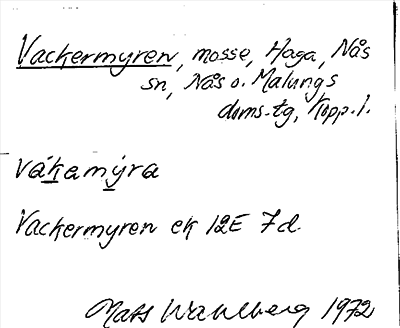 Vackermyren, mosse, Haga, Nås
sn, Nås o. Malungs
doms.tg, Kopp.l.
vákamýra
Vackermyren ek 12E 7d.
Mats Wahlberg 1972